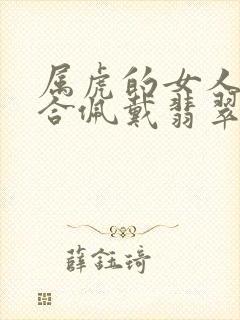 属虎的女人
合佩戴翡翠
薛钰琦